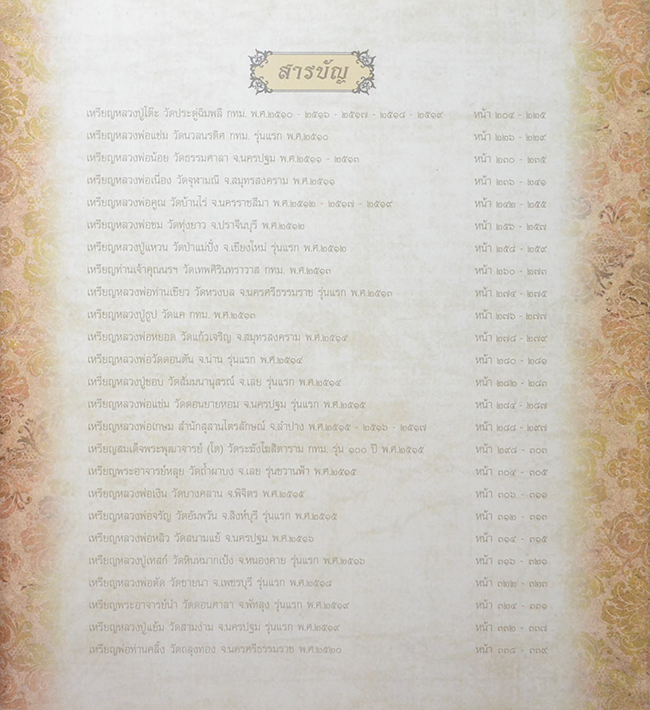 สารบัญ
เหรียญหลวงปู่โต๊ะ วัดประดู่ฉิมพลี กทม. พ.ศ.๒๕๑๐ - ๒๕๑๖ - ๒๕๑๗ - ๒๕๑๘ - ๒๕๑๙ หน้า ๒๐๔ - ๒๒๕
เหรียญหลวงพ่อแช่ม วัดนวลนรดิศ กทม. รุ่นแรก พ.ศ.๒๕๑๐ หน้า ๒๒๖ - ๒๒๙
เหรียญหลวงพ่อน้อย วัดธรรมศาลา จ.นครปฐม พ.ศ.๒๕๑๑ - ๒๕๑๓ หน้า ๒๓๐ - ๒๓๕
เหรียญหลวงพ่อเนื่อง วัดจุฬามณี จ.สมุทรสงคราม พ.ศ.๒๕๑๑ หน้า ๒๓๖ - ๒๔๑
เหรียญหลวงพ่อคูณ วัดบ้านไร่ จ.นครราชสีมา พ.ศ.๒๕๑๒ - ๒๕๑๗ - ๒๕๑๙ หน้า ๒๔๒ - ๒๕๕
เหรียญหลวงพ่อขม วัดทุ่งยาว จ.ปราจีนบุรี พ.ศ.๒๕๑๒ หน้า ๒๕๖ - ๒๕๗
เหรียญหลวงปู่แหวน วัดป่าแม่ปั๋ง จ.เชียงใหม่ รุ่นแรก พ.ศ.๒๕๑๒ หน้า ๒๕๘ - ๒๕๙
เหรียญท่านเจ้าคุณนรฯ วัดเทพศิรินทราวาส กทม. พ.ศ.๒๕๑๓ หน้า ๒๖๐ - ๒๗๓
เหรียญหลวงพ่อท่านเขียว วัดหรงบล จ.นครศรีธรรมราช รุ่นแรก พ.ศ.๒๕๑๓ หน้า ๒๗๔ - ๒๗๕
เหรียญหลวงปู่ธูป วัดแค กทม. พ.ศ.๒๕๑๓ หน้า ๒๗๖ - ๒๗๗
เหรียญหลวงพ่อหยอด วัดแก้วเจริญ จ.สมุทรสงคราม พ.ศ.๒๕๑๔ หน้า ๒๗๘ - ๒๗๙
เหรียญหลวงพ่อวัดดอนตัน จ.น่าน รุ่นแรก พ.ศ.๒๕๑๔ หน้า ๒๘๐ - ๒๘๑
เหรียญหลวงปู่ชอบ วัดสัมมนานุสรณ์ จ.เลย รุ่นแรก พ.ศ.๒๕๑๔ หน้า ๒๘๒ - ๒๘๓
เหรียญหลวงพ่อแช่ม วัดดอนยายหอม จ.นครปฐม รุ่นแรก พ.ศ.๒๕๑๕ หน้า ๒๘๔ - ๒๘๗
เหรียญหลวงพ่อเกษม สำนักสุสานไตรลักษณ์ จ.ลำปาง พ.ศ.๒๕๑๕ - ๒๕๑๖ - ๒๕๑๗ หน้า ๒๘๘ - ๒๙๗
เหรียญสมเด็จพระพุฒาจารย์ (โต) วัดระฆังโฆสิตาราม กทม. รุ่น ๑๐๐ ปี พ.ศ.๒๕๑๕ หน้า ๒๙๘ - ๓๐๓
เหรียญพระอาจารย์หลุย วัดถ้ำผาบง จ.เลย รุ่นขวานฟ้า พ.ศ.๒๕๑๕ หน้า ๓๐๔ - ๓๐๕
เหรียญหลวงพ่อเงิน วัดบางคลาน จ.พิจิตร พ.ศ.๒๕๑๕ หน้า ๓๐๖ - ๓๑๑
เหรียญหลวงพ่อจรัญ วัดอัมพวัน จ.สิงห์บุรี รุ่นแรก พ.ศ.๒๕๑๕ หน้า ๓๑๒ - ๓๑๓
เหรียญหลวงพ่อหลิว วัดสนามแย้ จ.นครปฐม พ.ศ.๒๕๑๖ หน้า ๓๑๔ - ๓๑๕
เหรียญหลวงปู่เทสก์ วัดหินหมากเป้ง จ.หนองคาย รุ่นแรก พ.ศ.๒๕๑๖ หน้า ๓๑๖ - ๓๒๑
เหรียญหลวงพ่อตัด วัดชายนา จ.เพชรบุรี รุ่นแรก พ.ศ.๒๕๑๘ หน้า ๓๒๒ - ๓๒๓
เหรียญพระอาจารย์นำ วัดดอนศาลา จ.พัทลุง รุ่นแรก พ.ศ.๒๕๑๙ หน้า ๓๒๔ - ๓๓๑
เหรียญหลวงปู่แย้ม วัดสามง่าม จ.นครปฐม รุ่นแรก พ.ศ.๒๕๑๙ หน้า ๓๓๒ - ๓๓๗
เหรียญพ่อท่านคลิ้ง วัดถลุงทอง จ.นครศรีธรรมราช พ.ศ.๒๕๒๐ หน้า ๓๓๘ - ๓๓๙